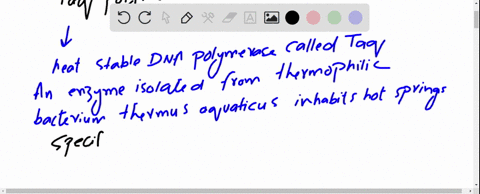 Taq
heat stable DNA polymerase called Taq
An enzyme isolated from thermophilic
bacterium thermus aquaticus inhabits hot springs
specif